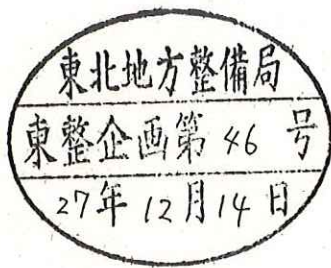 東北地方整備局
東整企画第46号
27年12月14日